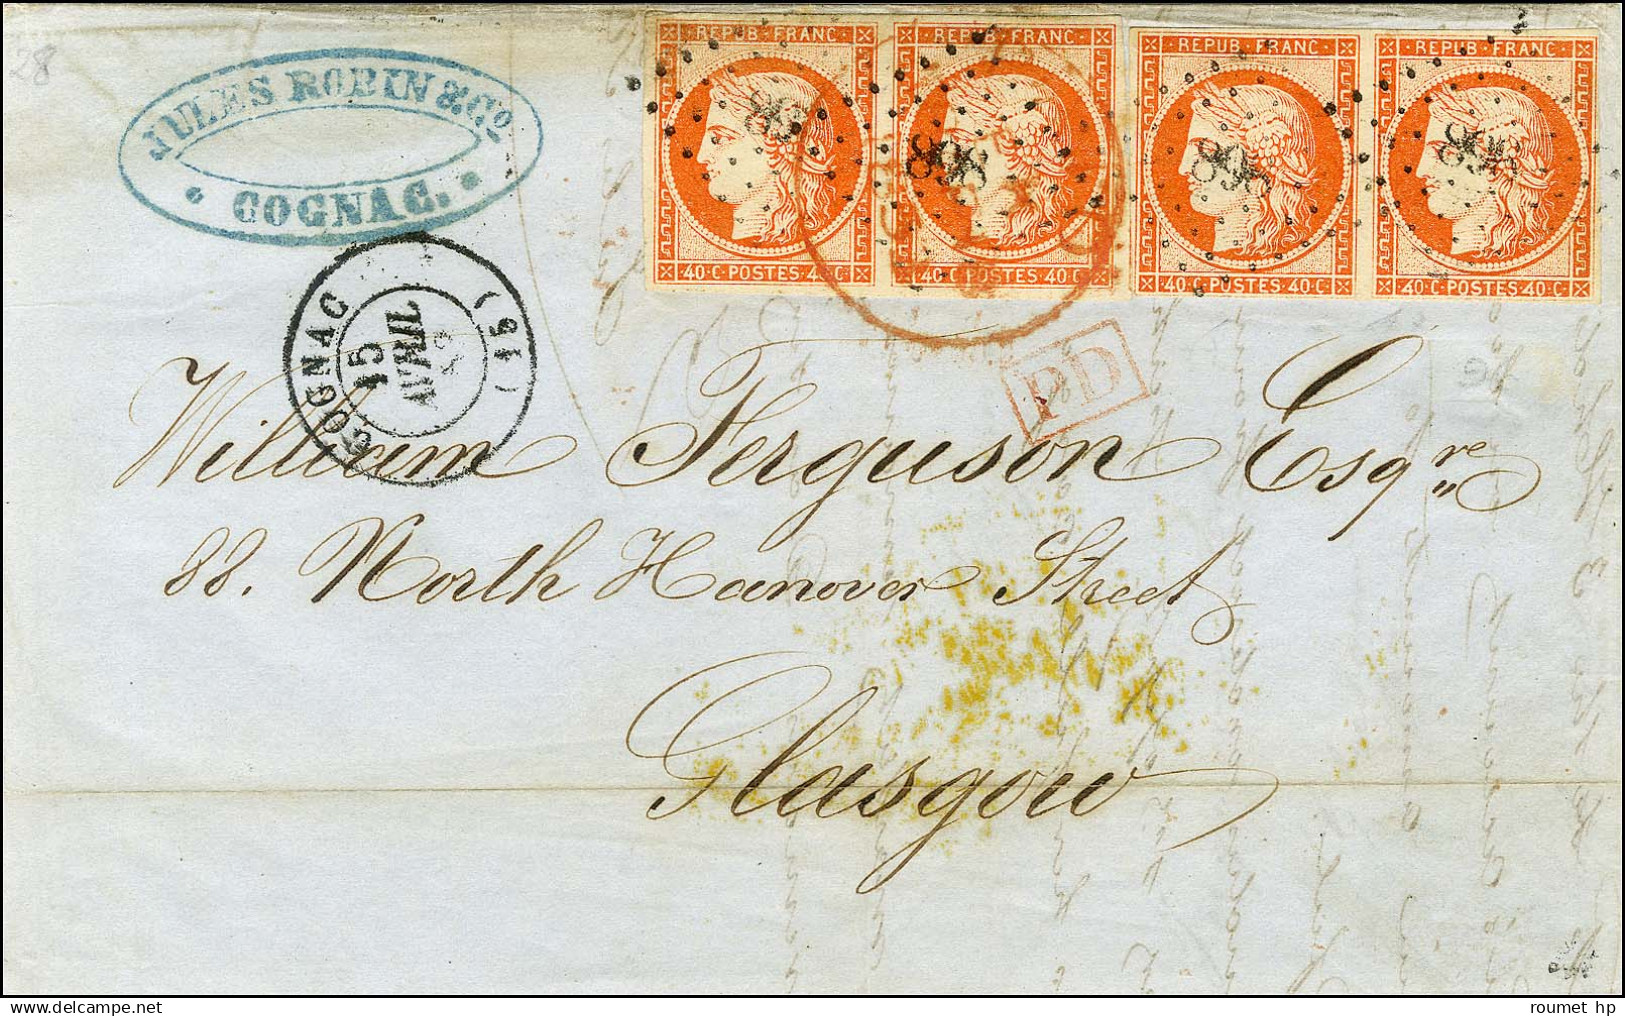 28
JULES ROBIN & Co
COGNAC.
REPUB. FRANC. REPUB. FRANC. REPUB. FRANC. REPUB. FRANC.
898 898 898
40·C·POSTES·40·C 40·C·POSTES·40·C 40·C·POSTES·40·C 40·C·POSTES·40·C
COGNAC (15)
15
AVRIL
PD
William Ferguson Esqre
88. North Hanover Street
Glasgow
roumet hp